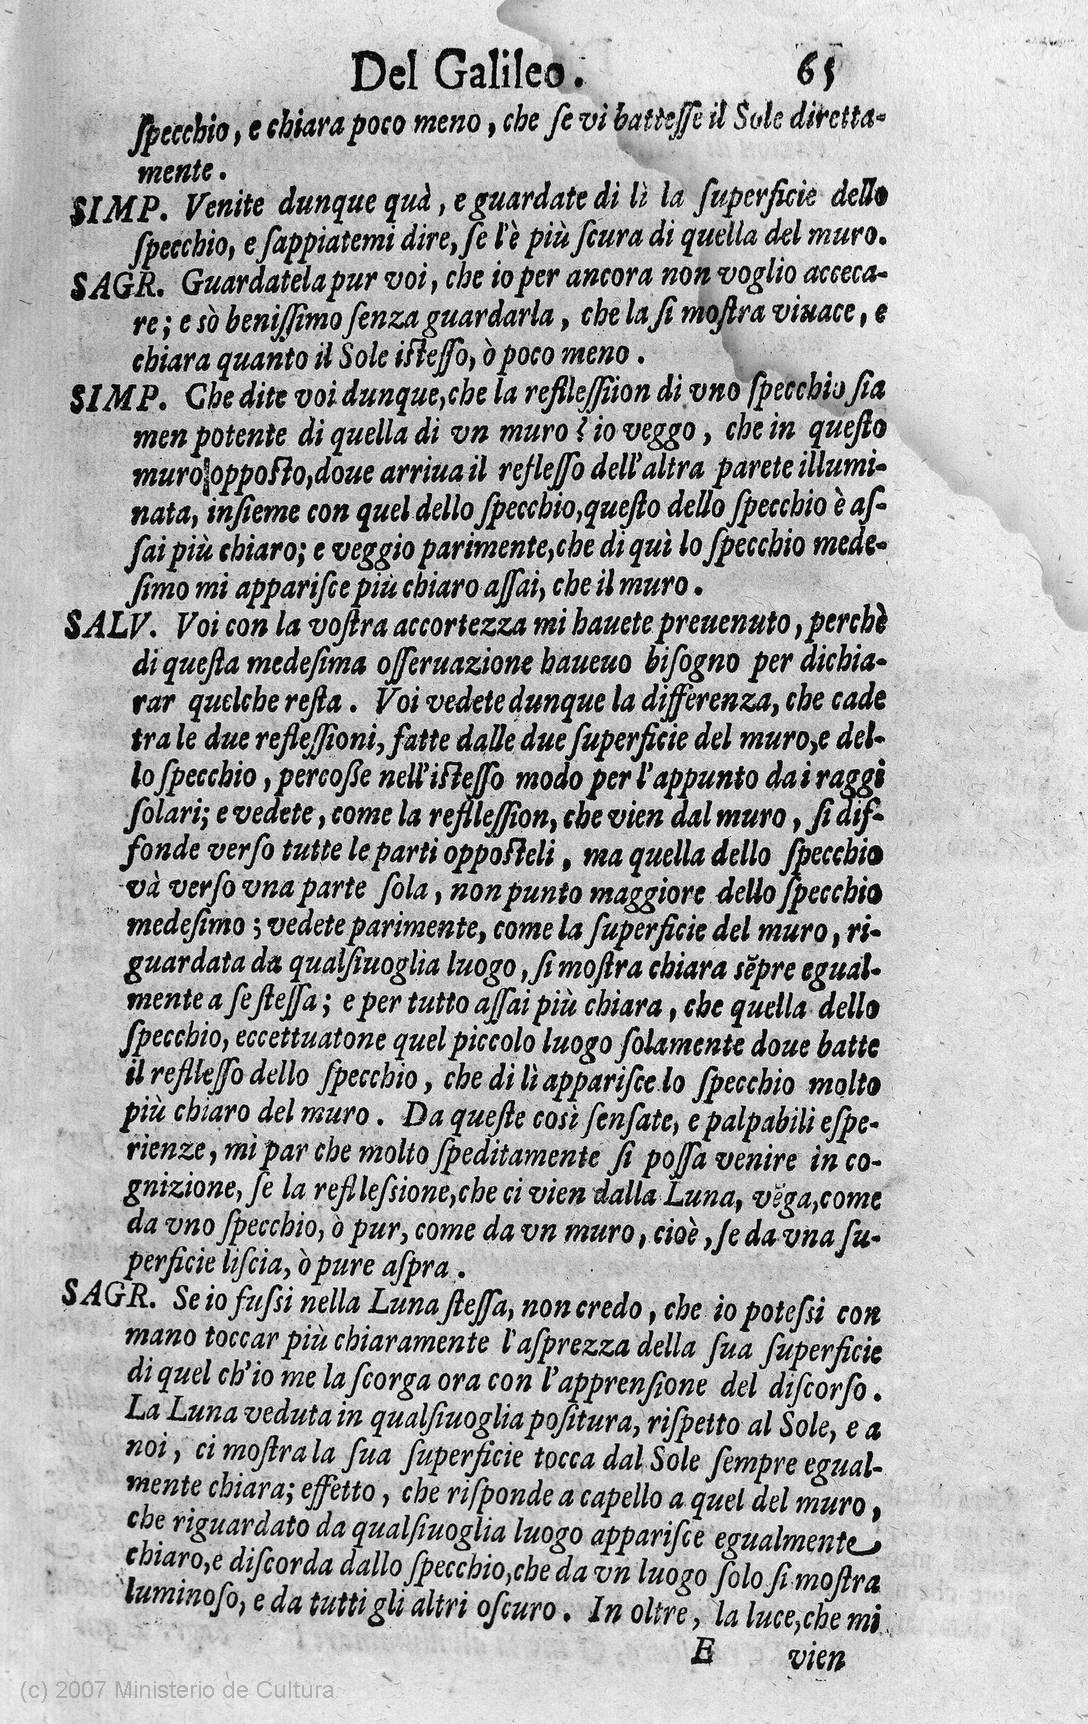 Del Galileo. 65
ſpecchio, e chiara poco meno, che ſe vi batteſſe il Sole diretta-
mente.
SIMP. Venite dunque quà, e guardate di lì la ſuperficie dello
ſpecchio, e ſappiatemi dire, ſe l'è più ſcura di quella del muro.
SAGR. Guardatela pur voi, che io per ancora non voglio acceca-
re; e sò beniſſimo ſenza guardarla, che la ſi moſtra viuace, e
chiara quanto il Sole iſteſſo, ò poco meno.
SIMP. Che dite voi dunque, che la reflleſſiion di vno ſpecchio ſia
men potente di quella di vn muro? io veggo, che in queſto
muro oppoſto, doue arriua il refleſſo dell'altra parete illumi-
nata, inſieme con quel dello ſpecchio, queſto dello ſpecchio è aſ-
ſai più chiaro; e veggio parimente, che di quì lo ſpecchio mede-
ſimo mi appariſce più chiaro aſſai, che il muro.
SALV. Voi con la voſtra accortezza mi hauete preuenuto, perchè
di queſta medeſima oſſeruazione haueuo biſogno per dichia-
rar quelche reſta. Voi vedete dunque la differenza, che cade
tra le due refleſſioni, fatte dalle due ſuperficie del muro, e del-
lo ſpecchio, percoße nell'iſteſſo modo per l'appunto da i raggi
ſolari; e vedete, come la reflleſſion, che vien dal muro, ſi dif-
fonde verſo tutte le parti oppoſteli, ma quella dello ſpecchio
và verſo vna parte ſola, non punto maggiore dello ſpecchio
medeſimo; vedete parimente, come la ſuperficie del muro, ri-
guardata da qualſiuoglia luogo, ſi moſtra chiara sẽpre egual-
mente a ſe ſteſſa; e per tutto aſſai più chiara, che quella dello
ſpecchio, eccettuatone quel piccolo luogo ſolamente doue batte
il reflleſſo dello ſpecchio, che di lì appariſce lo ſpecchio molto
più chiaro del muro. Da queſte così ſenſate, e palpabili eſpe-
rienze, mì par che molto ſpeditamente ſi poſſa venire in co-
gnizione, ſe la reflleſsione, che ci vien dalla Luna, vẽga, come
da vno ſpecchio, ò pur, come da vn muro, cioè, ſe da vna ſu-
perficie liſcia, ò pure aſpra.
SAGR. Se io fuſsi nella Luna ſteſſa, non credo, che io poteſsi con
mano toccar più chiaramente l'aſprezza della ſua ſuperficie
di quel ch'io me la ſcorga ora con l'apprenſione del diſcorſo.
La Luna veduta in qualſiuoglia poſitura, riſpetto al Sole, e a
noi, ci moſtra la ſua ſuperficie tocca dal Sole ſempre egual-
mente chiara; effetto, che riſponde a capello a quel del muro,
che riguardato da qualſiuoglia luogo appariſce egualmente
chiaro, e diſcorda dallo ſpecchio, che da vn luogo ſolo ſi moſtra
luminoſo, e da tutti gli altri oſcuro. In oltre, la luce, che mi
E vien
(c) 2007 Ministerio de Cultura